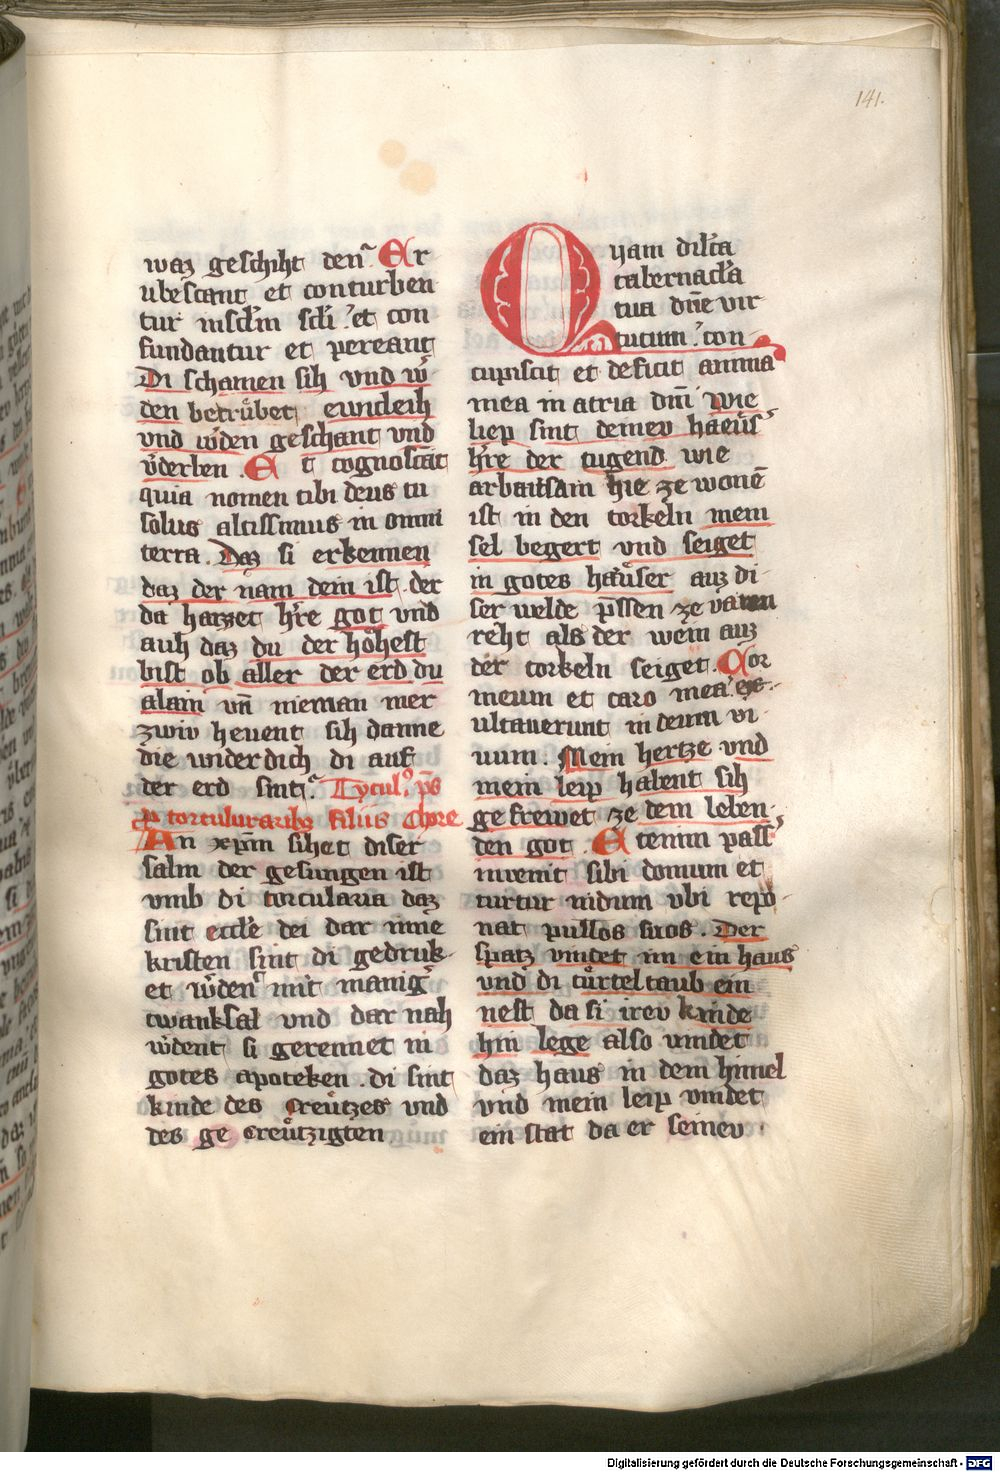 141.
waz geschiht den̄. Er
ubescant et conturben
tur insc̄lm sc̄li. et con
fundantur et pereant
Di schamen sih vnd w̄
den betrůbet ewicleih
vnd w̄den geschant vnd
v̄derben. Et cognoscāt
quia nomen tibi deus tu
solus altissimus in omni
terra. Daz si erkennen
daz der nam dein ist. der
da haizzet h̄re got vnd
auh daz du der höhest
bist ob aller der erd du
alain vn̄ nieman mer
zwiv hevent sih danne
die vnder dich di auf
der erd sint. Tytul9 ps̄
p̄ torculuraribz filiis Chore
An xp̄m sihet diser
salm der gesungen ist
vmb di torcularia daz
sint eccl̄e dei dar inne
kristen sint di gedruk
et w̄den mit maniḡ
twanksal vnd dar nah
w̄dent si gerennet in
gotes apoteken. di sint
kinde des creůtzes vnd
des ge creůtzigten
Qvam dil̄ca
tabernacl̄a
tua dn̄e vir
tutum. con-
cupiscit et deficit anima
mea in atria dn̄i wie
liep sint deinev haeůs̄
h̄re der tugend wie
arbaitsam hie ze wonē
ist in den torkeln mein
sel begert vnd seiget
in gotes haůser auz di-
ser welde p̄ssen ze varen
reht als der wein auz
der torkeln seiget. Cor
meum et caro mea ex-
ultauerunt in deum vi-
uum. Mein hertze vnd
mein leip habent sih
gefrewet ze dem leben-
den got. Etenim pass̄
inuenit sibi domum et
turtur nidum vbi repo-
nat pullos suos. Der
spatz vindet im ein haus
vnd di tůrteltaub ein
nest da si irev kinde
hin lege also vindet
daz haus in dem himel
vnd mein leip vindet
ein stat da er seinev
Digitalisierung gefördert durch die Deutsche Forschungsgemeinschaft - DFG